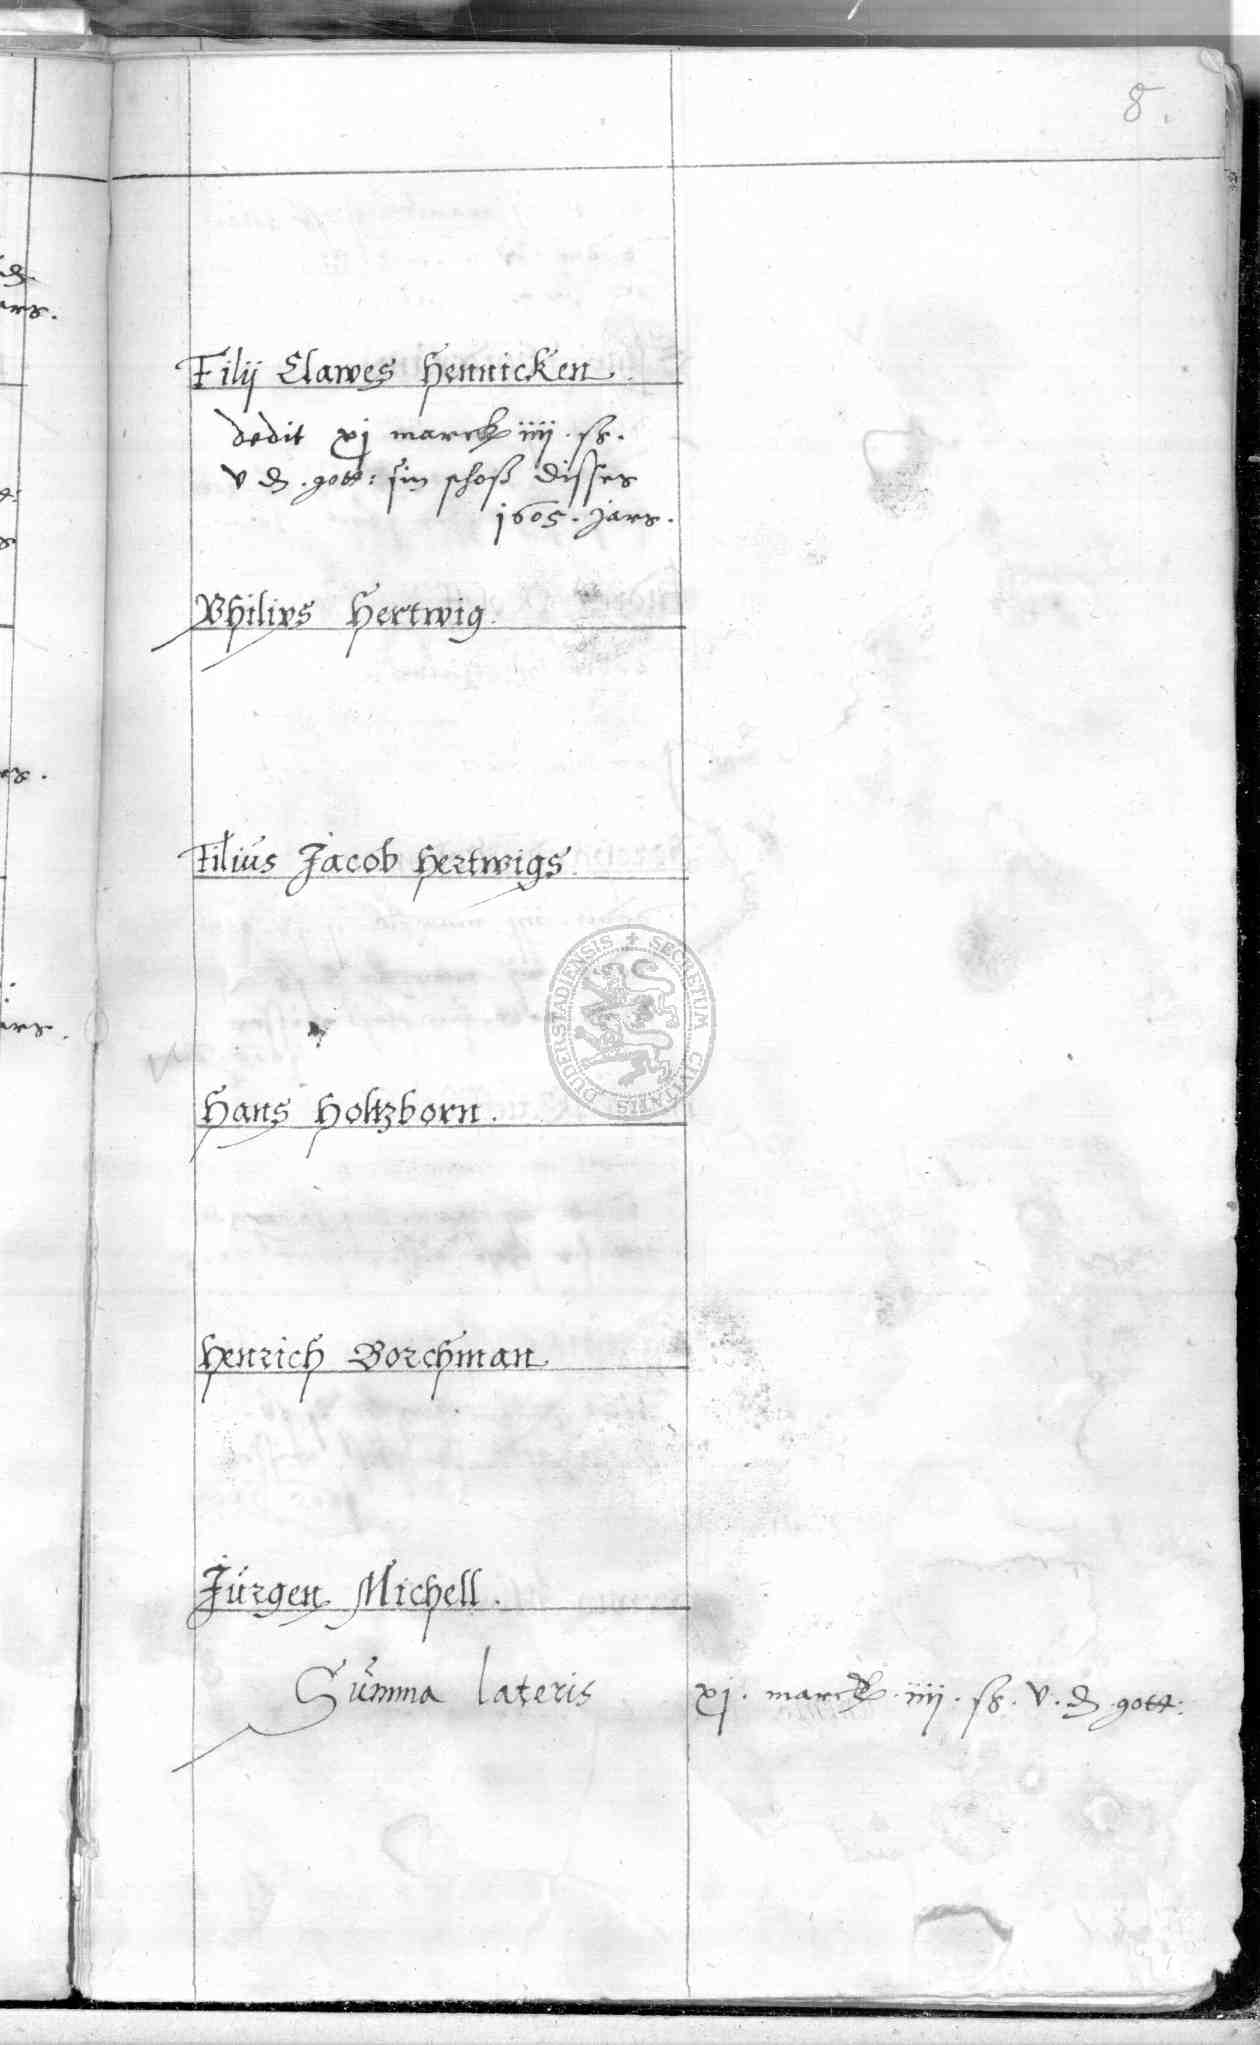 8.
Filij Clawes Hennicken.
dedit xj marck iiij. ß.
v ₰. gott: sin schoß disses
1605. Jars.
Philips Hertwig.
Filius Jacob Hertwigs.
Hans Holtzborn.
Henrich Borchman.
Jürgen Michell.
Summa lateris xj. marck. iiij. ß. v. ₰ gott:
SECRETUM CIVITATIS DUDERSTADIENSIS